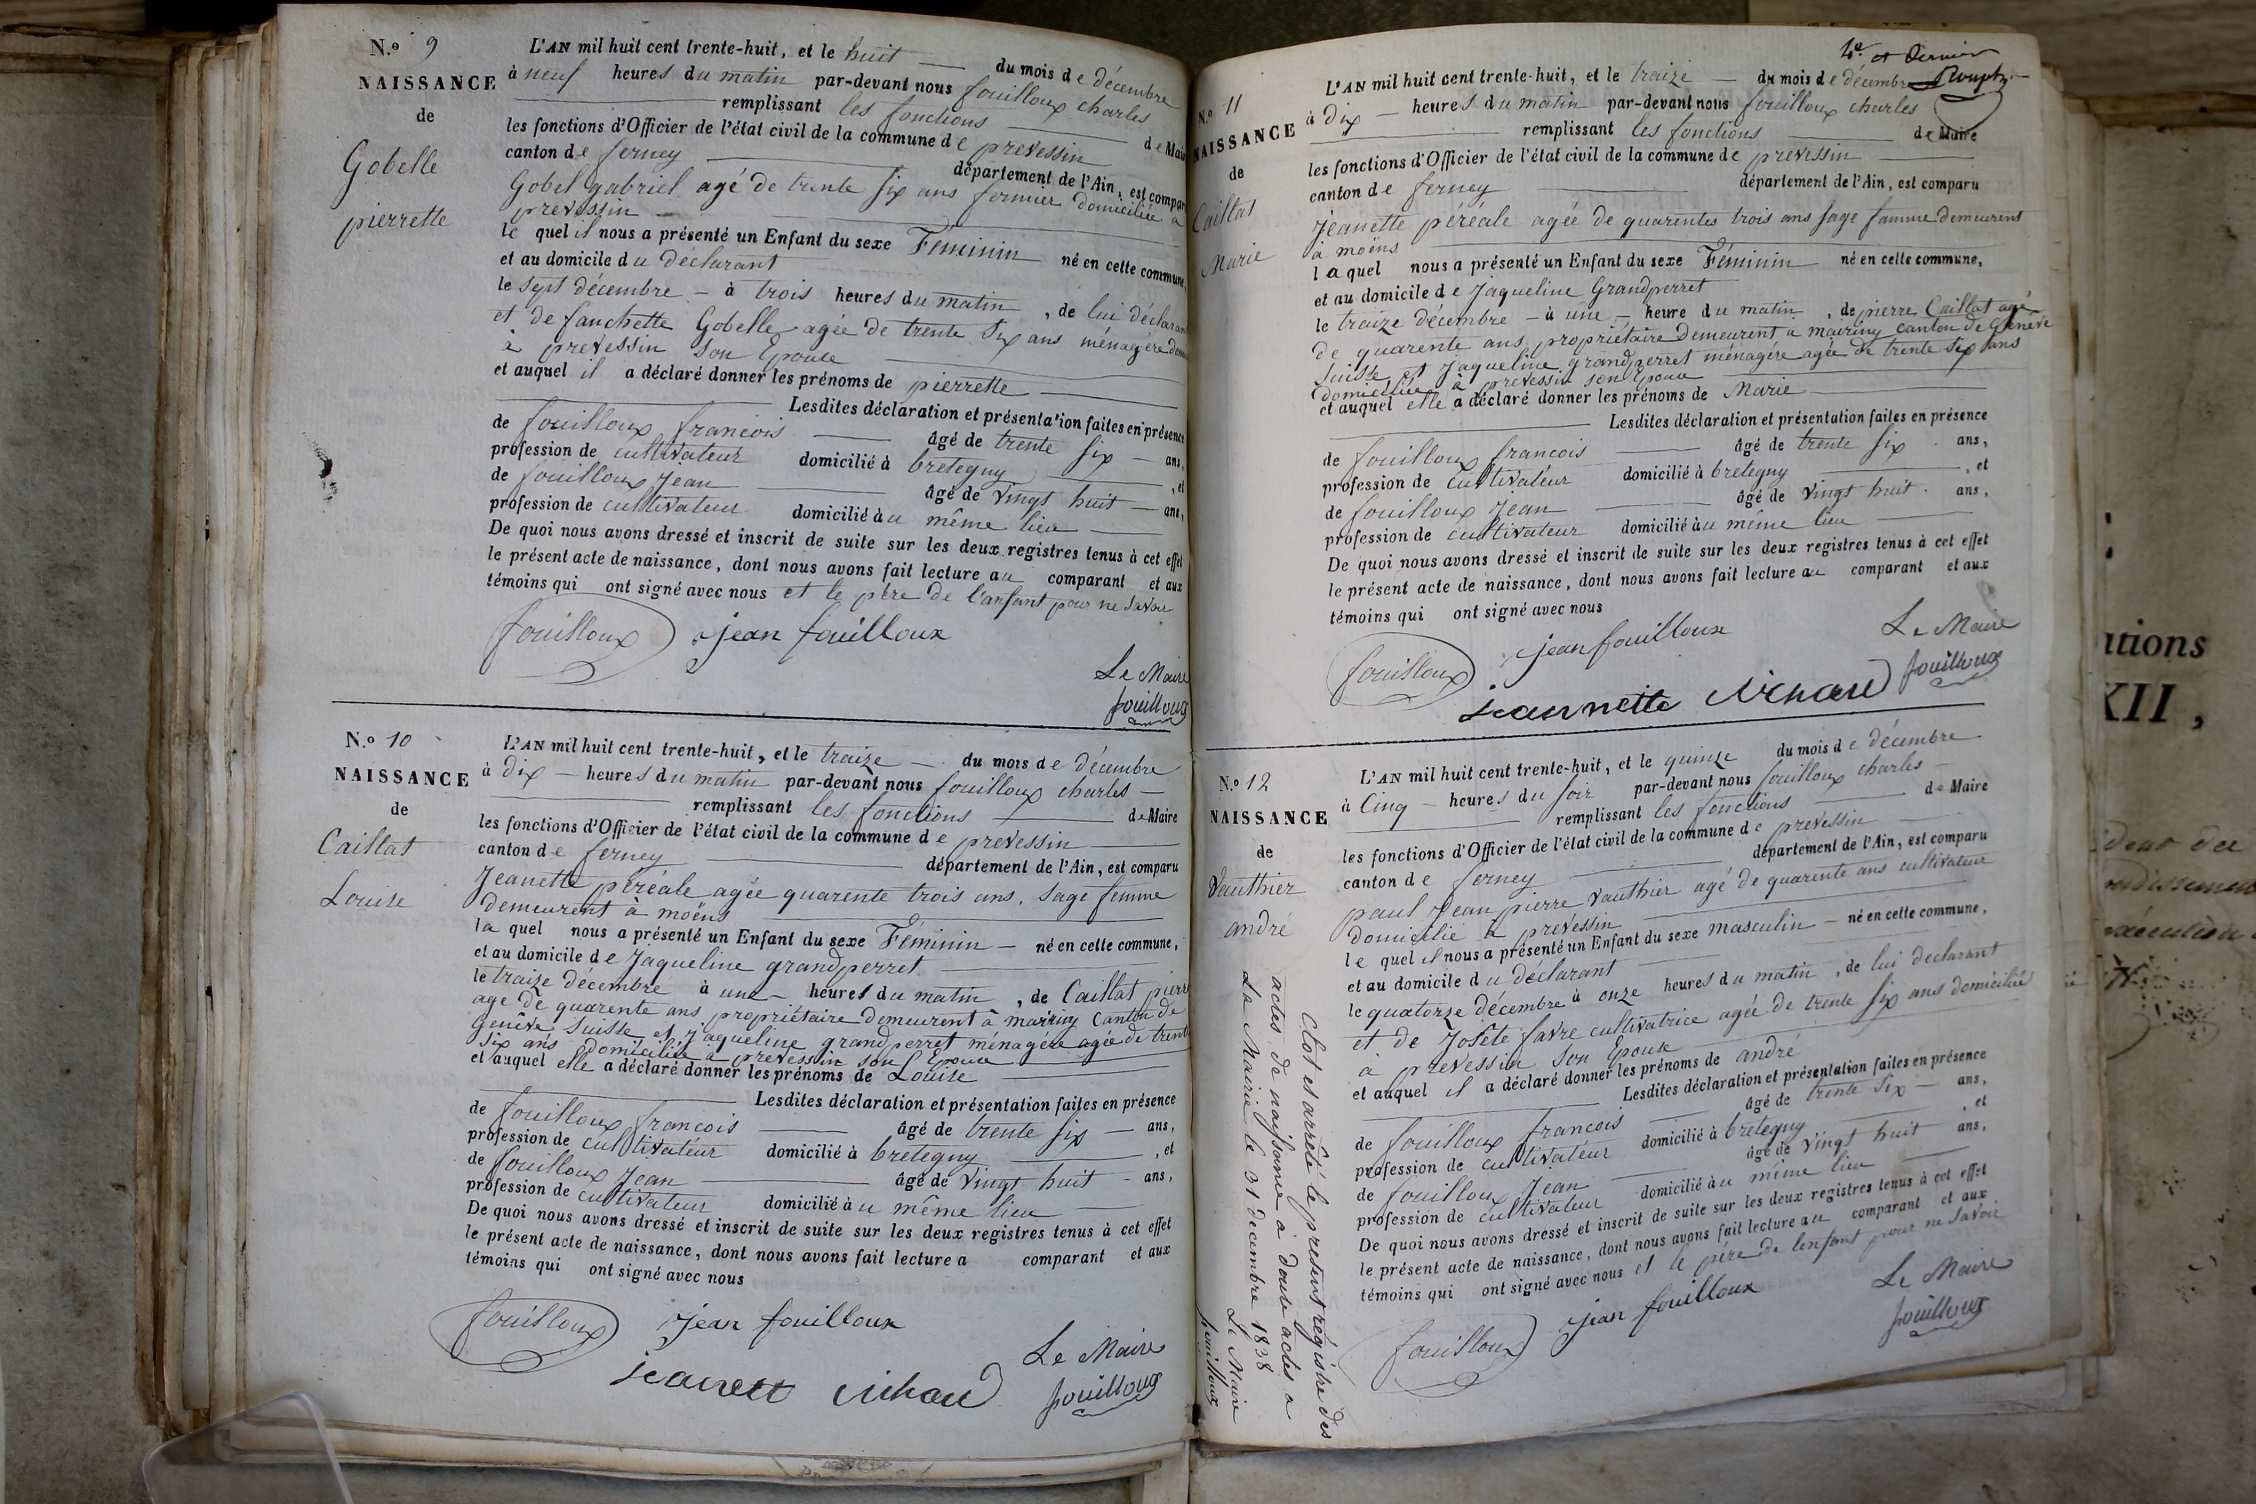 N.o 9
NAISSANCE
de
Gobelle
pierrette
L'AN mil huit cent trente-huit, et le huit du mois de décembre
à neuf heures du matin par-devant nous fouilloux charles
remplissant les fonctions de Maire
les fonctions d'Officier de l'état civil de la commune de prevessin
canton de ferney département de l'Ain, est compar
Gobel gabriel agé de trente six ans fermier domicilié a
prevessin
le quel il nous a présenté un Enfant du sexe Féminin né en cette commune,
et au domicile du déclarant
le sept décembre - à trois heures du matin, de lui déclaran
et de fanchette Gobelle agée de trente six ans ménagère
à prevessin son Epouse
et auquel il a déclaré donner les prénoms de pierrette
Lesdites déclaration et présentation faites en présence
de fouilloux francois âgé de trente six ans,
profession de cultivateur domicilié à bretegny, et
de fouilloux Jean âgé de vingt huit ans,
profession de cultivateur domicilié au même lieu
De quoi nous avons dressé et inscrit de suite sur les deux registres tenus à cet effet
le présent acte de naissance, dont nous avons fait lecture au comparant et aux
témoins qui ont signé avec nous et le père de l'anfant pour ne savoir
fouilloux jean fouilloux
Le Maire
fouilloux
N.o 10
NAISSANCE
de
Caillat
Louise
L'AN mil huit cent trente-huit, et le traize du mois de décembre
à dix heures du matin par-devant nous fouilloux charles
remplissant les fonctions de Maire
les fonctions d'Officier de l'état civil de la commune de prevessin
canton de ferney département de l'Ain, est comparu
Jeanette péréale agée quarente trois ans, sage femme
demeurent à moëns
la quel nous a présenté un Enfant du sexe Féminin né en cette commune,
et au domicile de Jaqueline grandperret
le traize décembre à une heures du matin, de Caillat pierre
age de quarente ans propriétaire demeurent à mairiny Canton de
Genêve Suisse et Jaqueline grandperret ménagère agée de trente
six ans domiciliée a prevessin son Epouse
et auquel elle a déclaré donner les prénoms de Louise
Lesdites déclaration et présentation faites en présence
de fouilloux francois âgé de trente six ans,
profession de cultivateur domicilié à bretegny, et
de fouilloux Jean âgé de vingt huit ans,
profession de cultivateur domicilié au même lieu
De quoi nous avons dressé et inscrit de suite sur les deux registres tenus à cet effet
le présent acte de naissance, dont nous avons fait lecture a comparant et aux
témoins qui ont signé avec nous
fouilloux jean fouilloux
Le Maire
fouilloux
4e et dernier
N.o 11
NAISSANCE
de
Caillat
Marie
L'AN mil huit cent trente-huit, et le traize du mois de décembre
à dix heures du matin par-devant nous fouilloux charles
remplissant les fonctions de Maire
les fonctions d'Officier de l'état civil de la commune de prevessin
canton de ferney département de l'Ain, est comparu
Jeanette péréale agée de quarentes trois ans sage famme demeurent
à moëns
laquel nous a présenté un Enfant du sexe Féminin né en cette commune,
et au domicile de Jaqueline Grandperret
le traize décembre - à une - heure du matin, de pierre Caillat agé
de quarente ans propriétaire demeurent a mairiny canton de Genêve
Suisse et Jaqueline grandperret ménagère agée de trente six ans
domiciliée à prevessin son Epouse
et auquel elle a déclaré donner les prénoms de Marie
Lesdites déclaration et présentation faites en présence
de fouilloux francois âgé de trente six ans,
profession de cultivateur domicilié à bretegny, et
de fouilloux Jean âgé de vingt huit ans,
profession de cultivateur domicilié au même lieu
De quoi nous avons dressé et inscrit de suite sur les deux registres tenus à cet effet
le présent acte de naissance, dont nous avons fait lecture au comparant et aux
témoins qui ont signé avec nous
fouilloux jean fouilloux
Le Maire
fouilloux
jeannette
N.o 12
NAISSANCE
de
Vauthier
andré
L'AN mil huit cent trente-huit, et le quinze du mois de décembre
à Cinq heures du soir par-devant nous fouilloux charles
remplissant les fonctions de Maire
les fonctions d'Officier de l'état civil de la commune de prevessin
canton de ferney département de l'Ain, est comparu
paul Jean pierre Vauthier agé de quarente ans cultivateur
domicilié a prevessin
le quel il nous a présenté un Enfant du sexe masculin né en cette commune,
et au domicile du déclarant
le quatorze décembre à onze heures du matin, de lui declarant
et de Josete favre cultivatrice agée de trente six ans domiciliés
à prevessin son Epouse
et auquel il a déclaré donner les prénoms de andré
Lesdites déclaration et présentation faites en présence
de fouilloux francois âgé de trente six ans,
profession de cultivateur domicilié à bretegny, et
de fouilloux Jean âgé de vingt huit ans,
profession de cultivateur domicilié au même lieu
De quoi nous avons dressé et inscrit de suite sur les deux registres tenus à cet effet
le présent acte de naissance, dont nous avons fait lecture au comparant et aux
témoins qui ont signé avec nous et le père de lenfant pour ne savoir
fouilloux jean fouilloux
Le Maire
fouilloux
Clot et arrêté le present régistre des
actes de naissance a douze actes a
La Mairie le 31 decembre 1838
Le Maire
fouilloux
ations
XII,